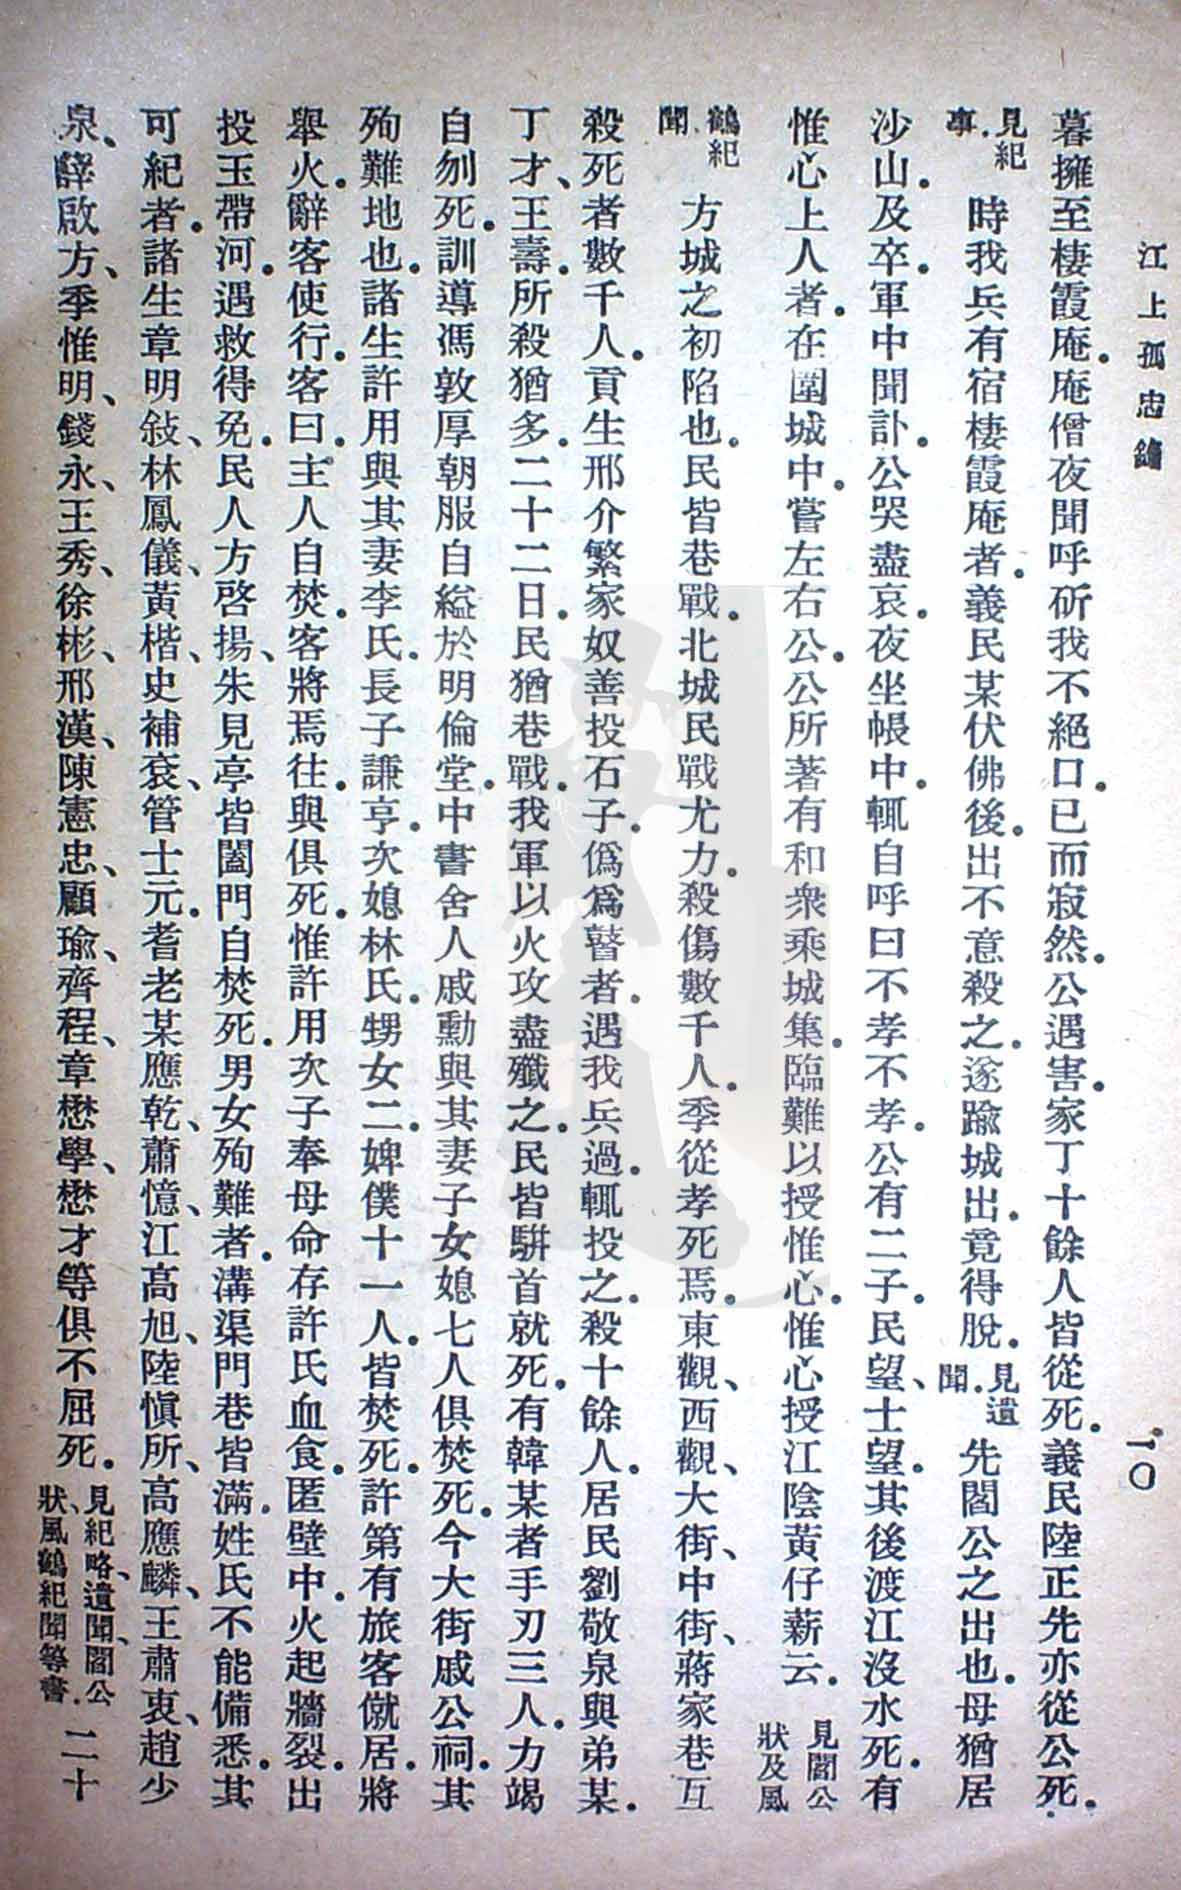 江上孤忠錄
一〇
暮擁至棲霞庵。庵僧夜聞呼斫我不絕口。已而寂然。公遇害。家丁十餘人皆從死。義民陸正先亦從公死。
見紀事。時我兵有宿棲霞庵者。義民某伏佛後。出不意殺之。遂踰城出。竟得脫。見遺聞。先閣公之出也。母猶居
沙山。及卒。軍中聞訃。公哭盡哀。夜坐帳中。輒自呼曰不孝不孝。公有二子。民望、士望。其後渡江沒水死。有
惟心上人者。在圍城中。嘗左右公。公所著有和衆乘城集。臨難以授惟心。惟心授江陰黃仔薪云。見閣公狀及風
鶴紀聞。方城之初陷也。民皆巷戰。北城民戰尤力。殺傷數千人。季從孝死焉。東觀、西觀、大街、中街、蔣家巷互
殺死者數千人。貢生邢介繁家奴善投石子。僞爲瞽者。遇我兵過。輒投之。殺十餘人。居民劉敬泉與弟某。
丁才、王壽。所殺猶多。二十二日。民猶巷戰。我軍以火攻盡殲之。民皆駢首就死。有韓某者手刃三人。力竭
自刎死。訓導馮敦厚朝服自縊於明倫堂。中書舍人戚勳與其妻子女媳七人俱焚死。今大街戚公祠。其
殉難地也。諸生許用與其妻李氏。長子謙亨。次媳林氏。甥女二婢僕十一人。皆焚死。許第有旅客僦居。將
舉火。辭客使行。客曰。主人自焚。客將焉往。與俱死。惟許用次子奉母命存許氏血食。匿壁中。火起牆裂。出
投玉帶河。遇救得免。民人方啓揚、朱見亭皆闔門自焚死。男女殉難者。溝渠門巷皆滿。姓氏不能備悉。其
可紀者。諸生章明敍、林鳳儀、黃楷、史補袞、管士元。耆老某應乾、蕭憶、江高旭、陸愼所、高應麟、王肅衷、趙少
泉、薛啟方、季惟明、錢永、王秀、徐彬、邢漢、陳憲忠、顧瑜、齊程、章懋學、懋才等俱不屈死。見紀略、遺聞、閣公狀、風鶴紀聞等書。二十